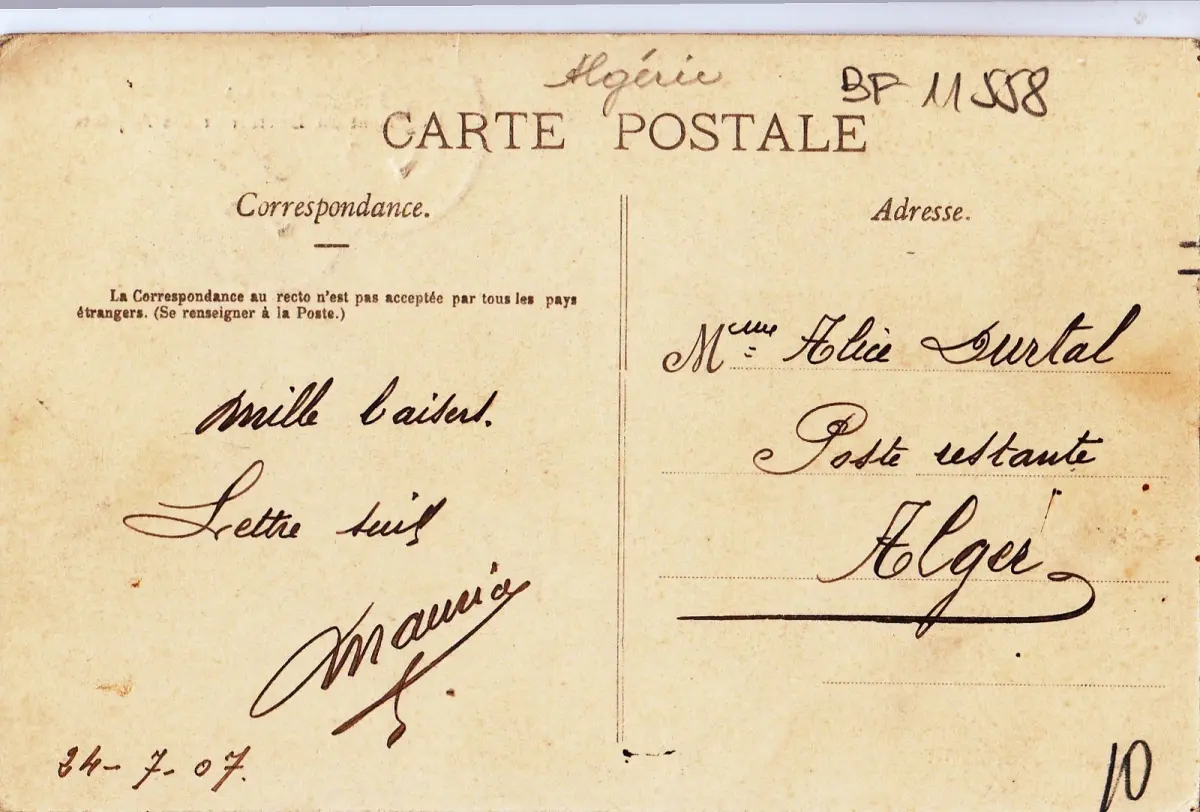 Algérie
BF 11558
CARTE POSTALE
Correspondance.
La Correspondance au recto n'est pas acceptée par tous les pays
étrangers. (Se renseigner à la Poste.)
mille baisers.
Lettre suit
Maurice
24-7-07.
Adresse.
Mme Alice Durtal
Poste restante
Alger
10